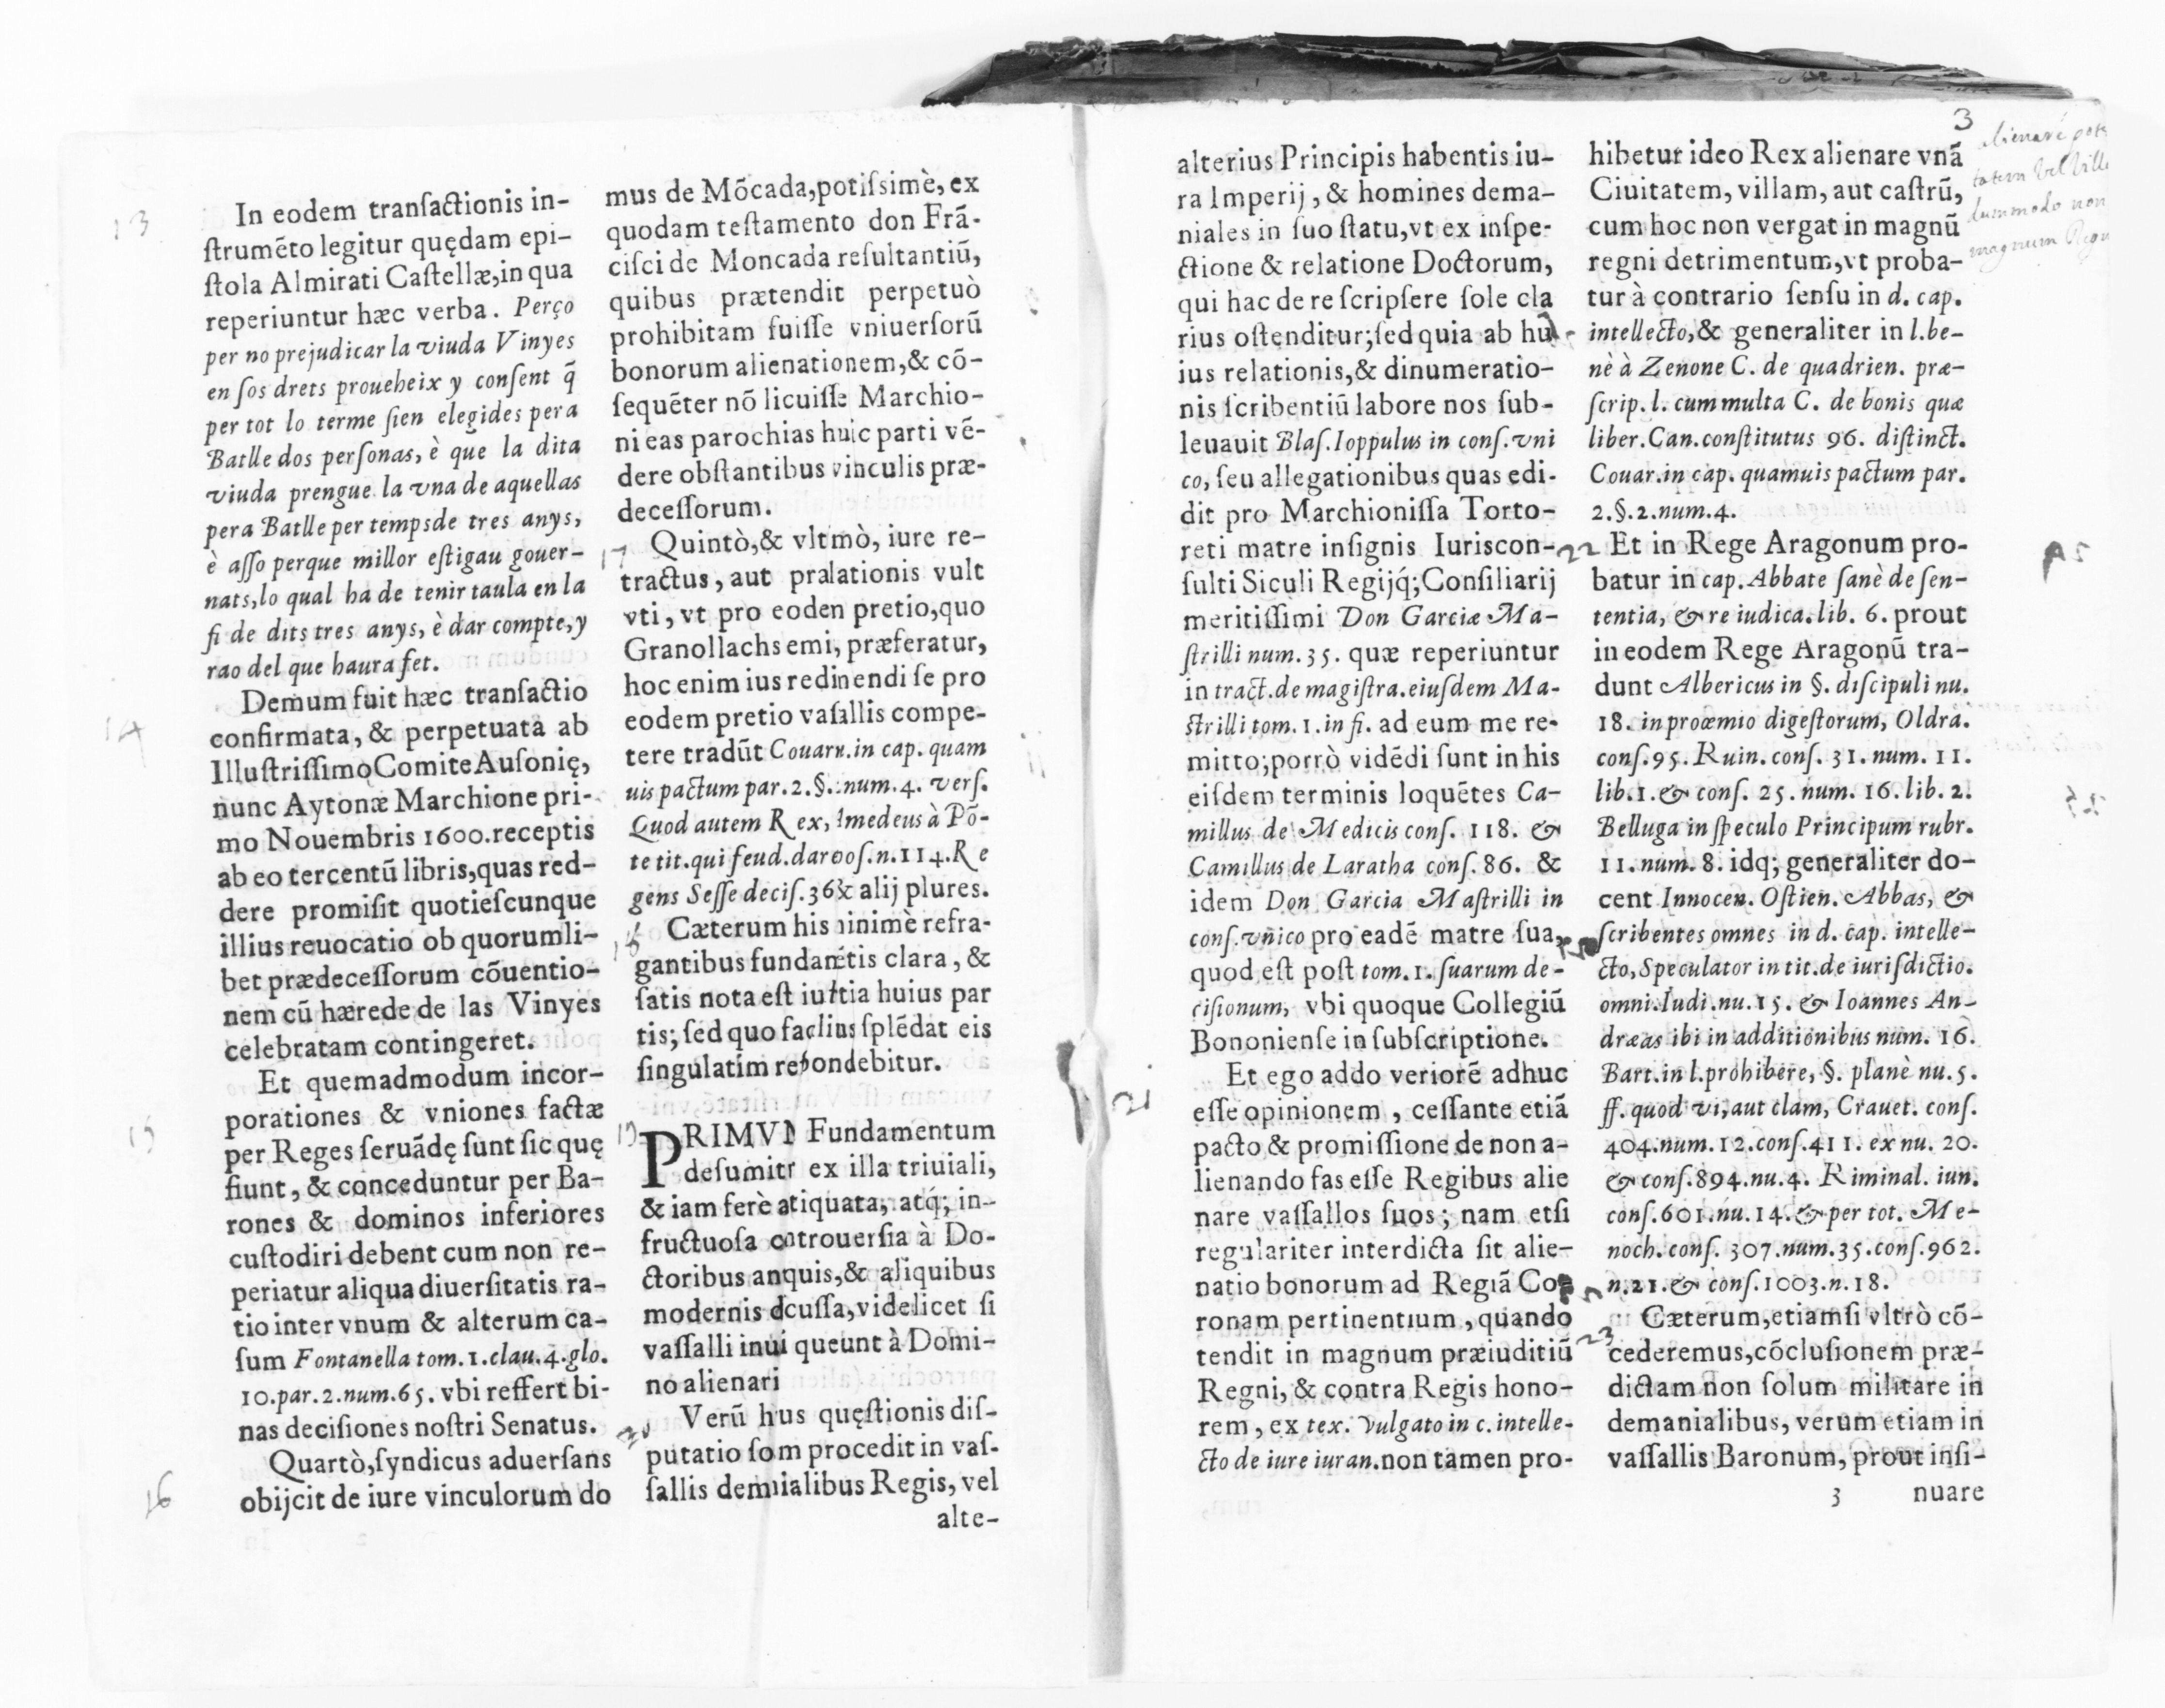 In eodem transactionis in-
strumẽto legitur quędam epi-
stola Almirati Castellæ,in qua
reperiuntur hæc verba. Perço
per no prejudicar la viuda Vinyes
en sos drets proueheix y consent q̃
per tot lo terme sien elegides pera
Batlle dos personas, è que la dita
viuda prengue la vna de aquellas
pera Batlle per temps de tres anys,
è asso perque millor estigau gouer-
nats,lo qual ha de tenir taula en la
fi de dits tres anys, è dar compte,y
rao del que haura fet.
Demum fuit hæc transactio
confirmata, & perpetuata ab
Illustrissimo Comite Ausonię,
nunc Aytonæ Marchione pri-
mo Nouembris 1600.receptis
ab eo tercentũ libris,quas red-
dere promisit quotiescunque
illius reuocatio ob quorumli-
bet prædecessorum cõuentio-
nem cũ hærede de las Vinyes
celebratam contingeret.
Et quemadmodum incor-
porationes & vniones factæ
per Reges seruãdę sunt sic quę
fiunt, & conceduntur per Ba-
rones & dominos inferiores
custodiri debent cum non re-
periatur aliqua diuersitatis ra-
tio inter vnum & alterum ca-
sum Fontanella tom.1.clau.4.glo.
10.par.2.num.65. vbi reffert bi-
nas decisiones nostri Senatus.
Quartò,syndicus aduersans
obijcit de iure vinculorum do
13
14
15
16
mus de Mõcada,potissimè, ex
quodam testamento don Frã-
cisci de Moncada resultantiũ,
quibus prætendit perpetuò
prohibitam fuisse vniuersorũ
bonorum alienationem,& cõ-
sequẽter nõ licuisse Marchio-
ni eas parochias huic parti vẽ-
dere obstantibus vinculis præ-
decessorum.
17 Quintò,& vltmò, iure re-
tractus, aut pralationis vult
vti, vt pro eoden pretio,quo
Granollachs emi, præferatur,
hoc enim ius redinendi se pro
eodem pretio vasallis compe-
tere tradũt Couarr.in cap. quam
uis pactum par.2.§. num.4. vers.
Quod autem Rex, medeus à Põ-
te tit.qui feud.dar oos.n.114.Re
gens Sesse decis.36 & alij plures.
18 Cæterum his inimè refra-
gantibus fundamẽtis clara, &
satis nota est iustitia huius par
tis; sed quo facilius splẽdat eis
singulatim respondebitur.
19 PRIMVM Fundamentum
desumitr ex illa triuiali,
& iam ferè atiquata, atq́; in-
fructuosa cotrouersia à Do-
ctoribus anquis,& aliquibus
modernis dcussa,videlicet si
vassalli inui queunt à Domi-
no alienari
20 Verũ hus quęstionis dis-
putatio som procedit in vas-
sallis demnialibus Regis, vel
alte-
3
alterius Principis habentis iu-
ra Imperij, & homines dema-
niales in suo statu,vt ex inspe-
ctione & relatione Doctorum,
qui hac de re scripsere sole cla
rius ostenditur;sed quia ab hu
ius relationis,& dinumeratio-
nis scribentiũ labore nos sub-
leuauit Blas.Ioppulus in cons.vni
co, seu allegationibus quas edi-
dit pro Marchionissa Torto-
reti matre insignis Iuriscon-
sulti Siculi Regijq́;Consiliarij
meritissimi Don Garciæ Ma-
strilli num.35. quæ reperiuntur
in tract.de magistra.eiusdem Ma-
strilli tom.1.in fi. ad eum me re-
mitto;porrò vidẽdi sunt in his
eisdem terminis loquẽtes Ca-
millus de Medicis cons. 118. &
Camillus de Laratha cons.86. &
idem Don Garcia Mastrilli in
cons.vnico pro eadẽ matre sua,
quod est post tom.1.suarum de-
cisionum, vbi quoque Collegiũ
Bononiense in subscriptione.
21 Et ego addo veriorẽ adhuc
esse opinionem, cessante etiã
pacto & promissione de non a-
lienando fas esse Regibus alie
nare vassallos suos; nam etsi
regulariter interdicta sit alie-
natio bonorum ad Regiã Co
ronam pertinentium, quando
tendit in magnum præiuditiũ
Regni, & contra Regis hono-
rem, ex tex. vulgato in c. intelle-
cto de iure iuran.non tamen pro-
hibetur ideo Rex alienare vnã
Ciuitatem, villam, aut castrũ,
cum hoc non vergat in magnũ
regni detrimentum,vt proba-
tur à contrario sensu in d. cap.
intellecto,& generaliter in l.be-
nè à Zenone C. de quadrien. præ-
scrip. l. cum multa C. de bonis quæ
liber. Can.constitutus 96. distinct.
Couar.in cap. quamuis pactum par.
2.§.2.num.4.
22 Et in Rege Aragonum pro-
batur in cap.Abbate sanè de sen-
tentia, & re iudica.lib. 6. prout
in eodem Rege Aragonũ tra-
dunt Albericus in §. discipuli nu.
18. in proœmio digestorum, Oldra.
cons.95. Ruin. cons. 31. num. 11.
lib.1.& cons. 25. num. 16. lib. 2.
Belluga in speculo Principum rubr.
11. num. 8. idq; generaliter do-
cent Innocen. Ostien. Abbas, &
scribentes omnes in d. cap. intelle-
cto, Speculator in tit.de iurisdictio.
omni.Iudi.nu.15. & Ioannes An-
dræas ibi in additionibus num. 16.
Bart.in l.prohibere, §. planè nu.5.
ff. quod vi,aut clam, Crauet. cons.
404.num.12.cons.411. ex nu. 20.
& cons.894.nu.4. Riminal. iun.
cons.601.nu.14.& per tot. Me-
noch. cons. 307.num.35.cons.962.
n.21.& cons.1003.n.18.
23 Cæterum,etiamsi vltrò cõ-
cederemus,cõclusionem præ-
dictam non solum militare in
demanialibus, verum etiam in
vassallis Baronum, prout insi-
3 nuare
dummodo non
magnum